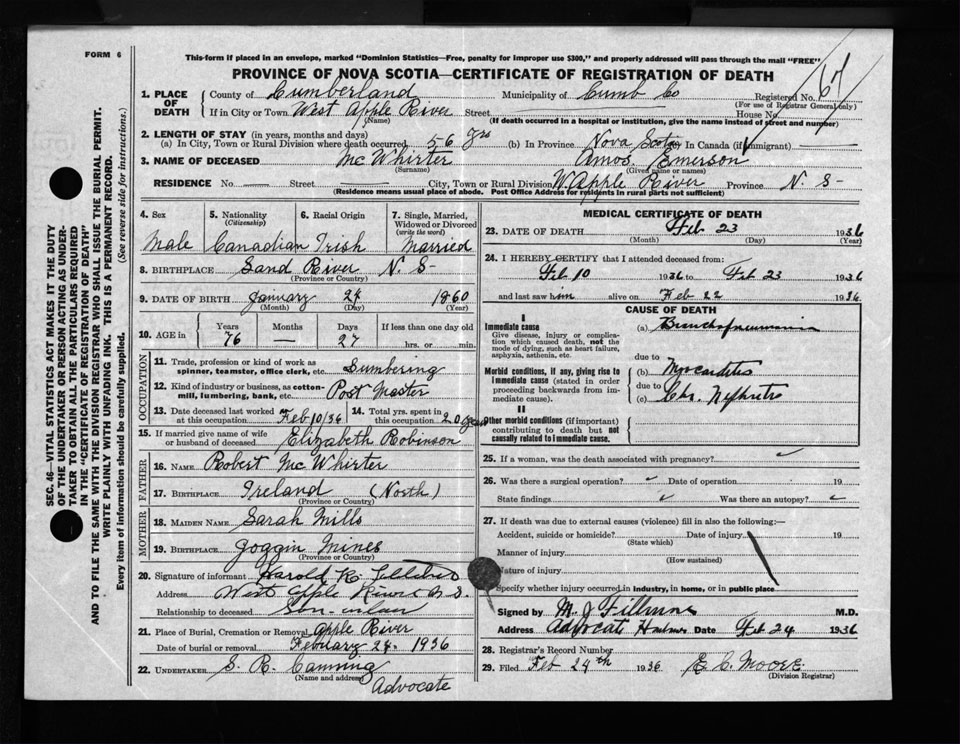 FORM 6
This form if placed in an envelope, marked "Dominion Statistics—Free, penalty for improper use $300," and properly addressed will pass through the mail "FREE"
PROVINCE OF NOVA SCOTIA—CERTIFICATE OF REGISTRATION OF DEATH
SEC. 46—VITAL STATISTICS ACT MAKES IT THE DUTY
OF THE UNDERTAKER OR PERSON ACTING AS UNDER-
TAKER TO OBTAIN ALL THE PARTICULARS REQUIRED
IN THE "CERTIFICATE OF REGISTRATION OF DEATH"
AND TO FILE THE SAME WITH THE DIVISION REGISTRAR WHO SHALL ISSUE THE BURIAL PERMIT.
WRITE PLAINLY WITH UNFADING INK. THIS IS A PERMANENT RECORD.
Every item of information should be carefully supplied. (See reverse side for instructions.)
1. PLACE OF DEATH County of Cumberland Municipality of Cumb Co Registered No. 67
(For use of Registrar General only)
If in City or Town West Apple River Street House No.
(Name) (If death occurred in a hospital or institution, give the name instead of street and number)
2. LENGTH OF STAY (in years, months and days)
(a) In City, Town or Rural Division where death occurred 56 yrs (b) In Province Nova Scotia In Canada (if immigrant)
3. NAME OF DECEASED Mc Whirter Amos Emerson
(Surname) (Given name or names)
RESIDENCE No. Street City, Town or Rural Division W. Apple River Province N. S-
(Residence means usual place of abode. Post Office Address for residents in rural parts not sufficient)
4. Sex 5. Nationality (Citizenship) 6. Racial Origin 7. Single, Married, Widowed or Divorced (write the word)
Male Canadian Irish Married
8. BIRTHPLACE Sand River N. S-
(Province or Country)
9. DATE OF BIRTH January 27 1860
(Month) (Day) (Year)
10. AGE in Years Months Days If less than one day old
76 — 27 hrs. or min.
OCCUPATION
11. Trade, profession or kind of work as spinner, teamster, office clerk, etc. Lumbering
12. Kind of industry or business, as cotton-mill, lumbering, bank, etc. Post Master
13. Date deceased last worked at this occupation Feb 10/36 14. Total yrs. spent in this occupation 20 years
15. If married give name of wife or husband of deceased Elizabeth Robinson
FATHER
16. NAME Robert Mc Whirter
17. BIRTHPLACE Ireland (North)
(Province or Country)
MOTHER
18. MAIDEN NAME Sarah Mills
19. BIRTHPLACE Joggin Mines
(Province or Country)
20. Signature of informant Harold K.
Address West Apple River N. S.
Relationship to deceased Son-inlaw
21. Place of Burial, Cremation or Removal Apple River
Date of burial or removal February 24 1936
22. UNDERTAKER S. B. Canning
(Name and address) Advocate
MEDICAL CERTIFICATE OF DEATH
23. DATE OF DEATH Feb 23 1936
(Month) (Day) (Year)
24. I HEREBY CERTIFY that I attended deceased from:
Feb 10 1936 to Feb 23 1936
and last saw him alive on Feb 22 1936
CAUSE OF DEATH
I
Immediate cause (a) Bronchopneumonia
Give disease, injury or complication which caused death, not the mode of dying, such as heart failure, asphyxia, asthenia, etc.
due to
Morbid conditions, if any, giving rise to immediate cause (stated in order proceeding backwards from immediate cause). (b) Myocarditis
due to
(c) Chr. Nephritis
II
Other morbid conditions (if important) contributing to death but not causally related to immediate cause.
25. If a woman, was the death associated with pregnancy?
26. Was there a surgical operation? Date of operation 19
State findings Was there an autopsy?
27. If death was due to external causes (violence) fill in also the following:—
Accident, suicide or homicide? Date of injury 19
(State which)
Manner of injury
(How sustained)
Nature of injury
Specify whether injury occurred in industry, in home, or in public place
Signed by M. J. Fillmore M.D.
Address Advocate Harbour Date Feb 24 1936
28. Registrar's Record Number
29. Filed Feb 24th 1936 E. C. Moore
(Division Registrar)